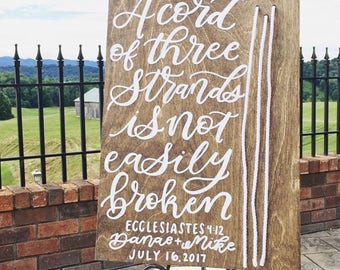 A cord
of three
strands
is not
easily
broken
ECCLESIASTES 4:12
Danae + Mike
JULY 16, 2017